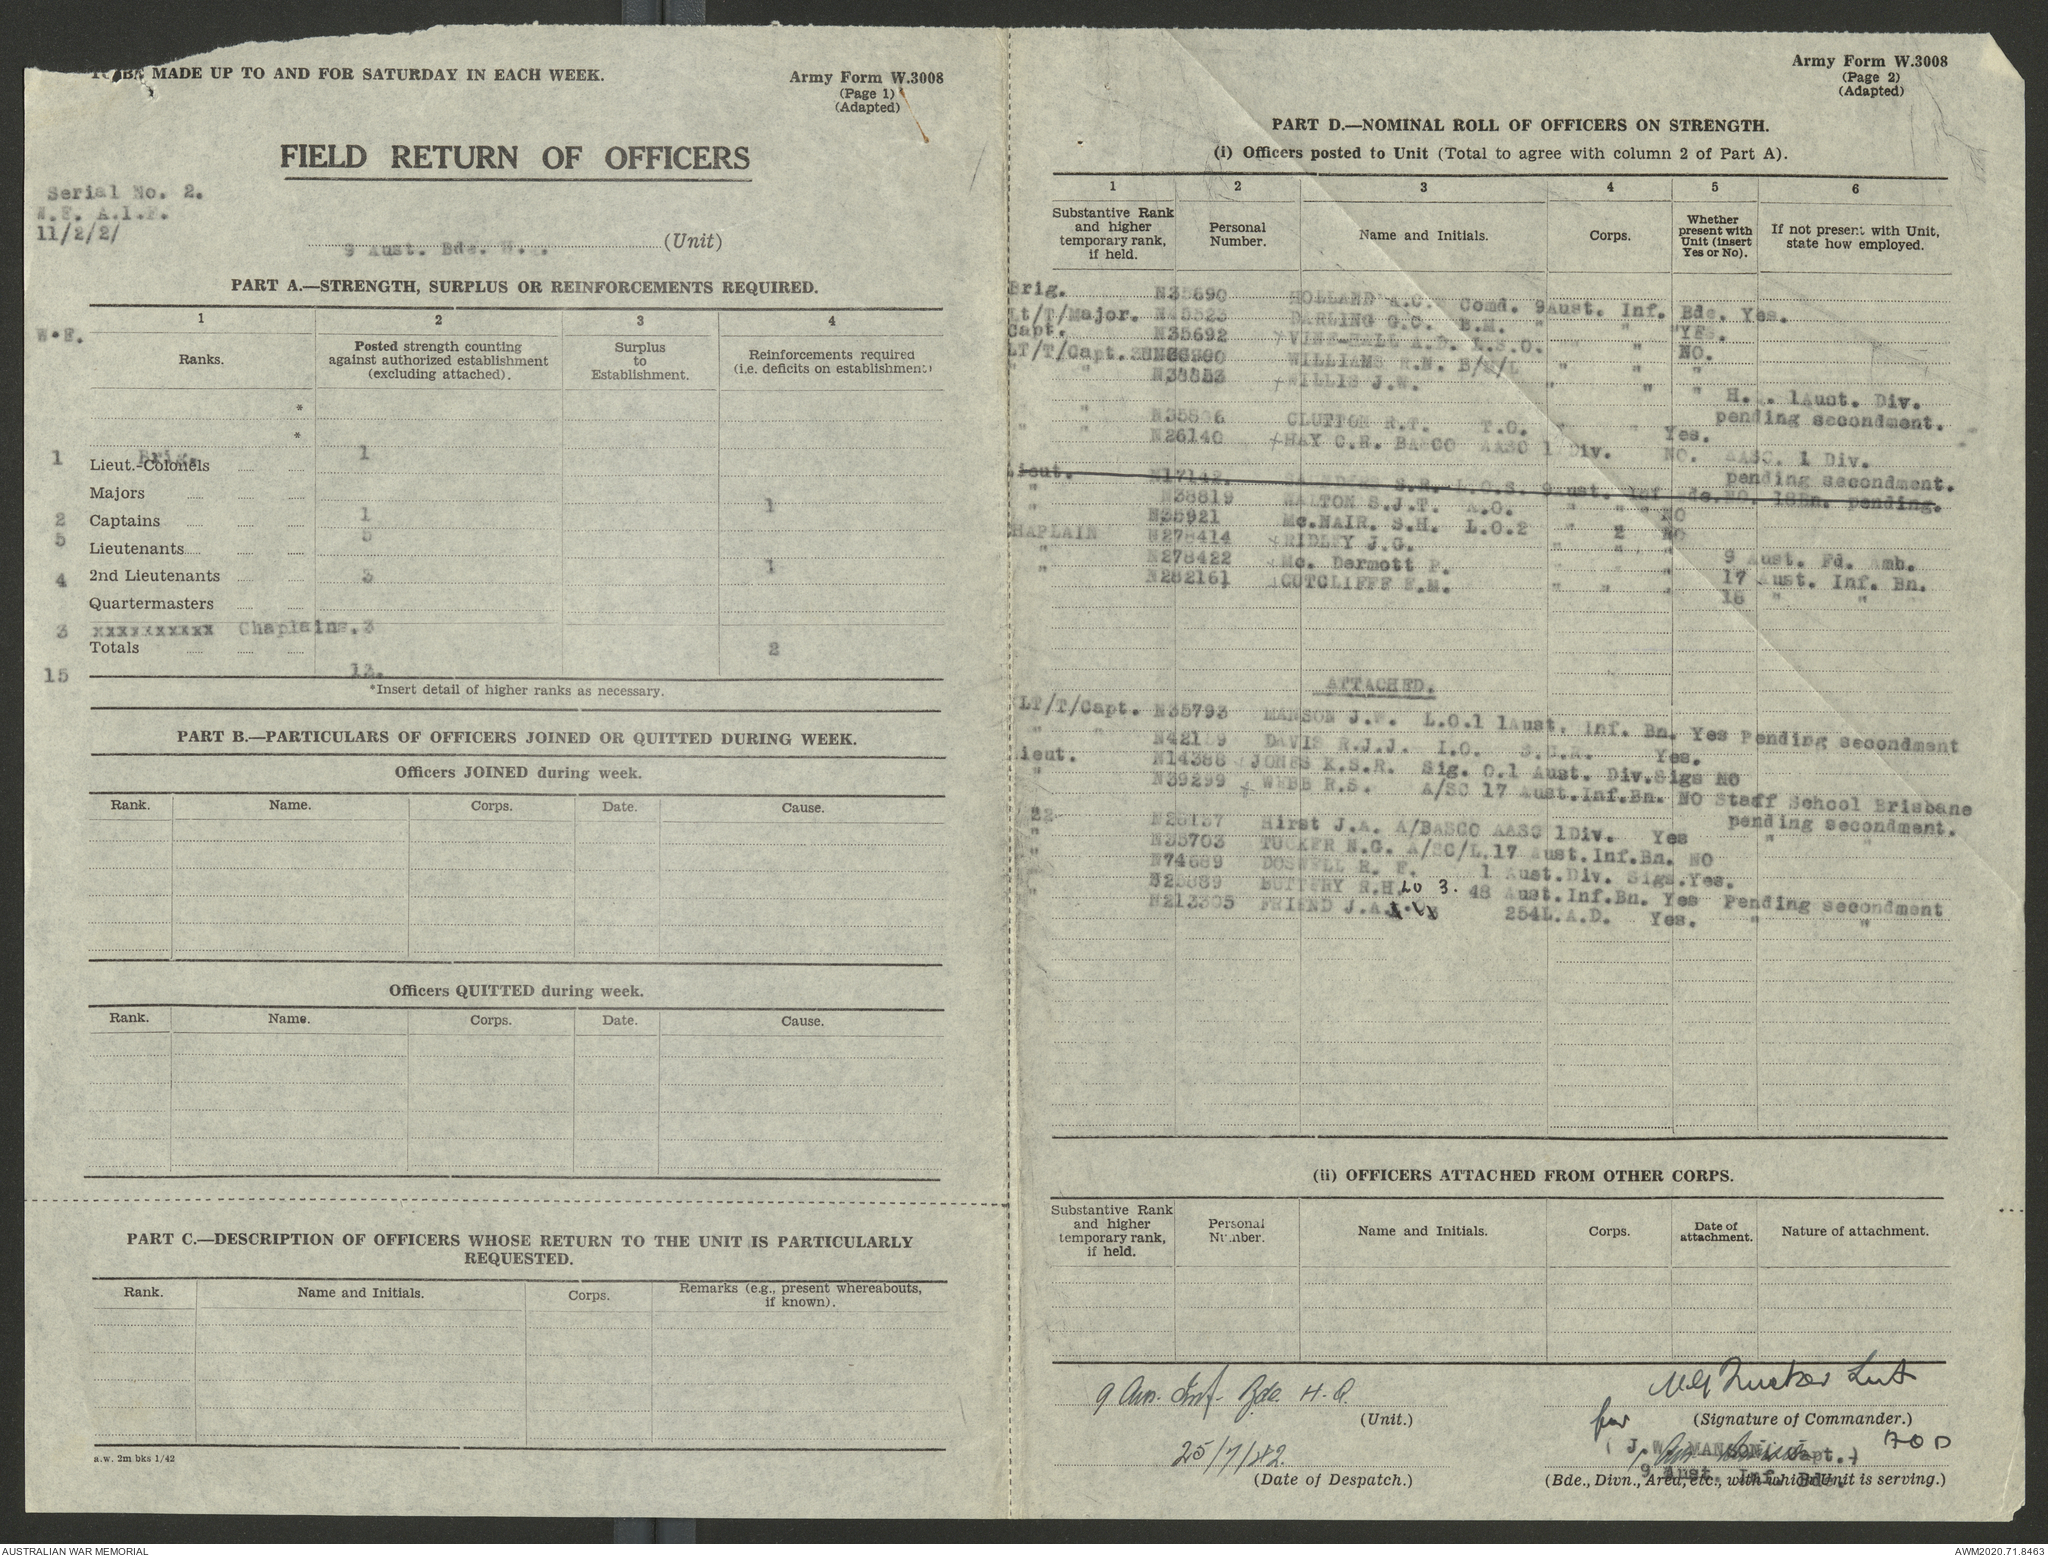 TO BE MADE UP TO AND FOR SATURDAY IN EACH WEEK.
Army Form W.3008
(Page 1)
(Adapted)
FIELD RETURN OF OFFICERS
Serial No. 2.
W.E. A.I.F.
11/2/2/
9 Aust. Bde. H. (Unit)
PART A.—STRENGTH, SURPLUS OR REINFORCEMENTS REQUIRED.
W.E.
1 2 3 4
Ranks.
Posted strength counting against authorized establishment (excluding attached).
Surplus to Establishment.
Reinforcements required (i.e. deficits on establishment)
*
*
1 Brig. 1
Lieut.-Colonels
Majors 1
2 Captains 1
5 Lieutenants 5
4 2nd Lieutenants 3 1
Quartermasters
3 xxxxxxxxxx Chaplains. 3
Totals 2
15 13.
*Insert detail of higher ranks as necessary.
PART B.—PARTICULARS OF OFFICERS JOINED OR QUITTED DURING WEEK.
Officers JOINED during week.
Rank. Name. Corps. Date. Cause.
Officers QUITTED during week.
Rank. Name. Corps. Date. Cause.
PART C.—DESCRIPTION OF OFFICERS WHOSE RETURN TO THE UNIT IS PARTICULARLY
REQUESTED.
Rank. Name and Initials. Corps. Remarks (e.g., present whereabouts, if known).
a.w. 2m bks 1/42
Army Form W.3008
(Page 2)
(Adapted)
PART D.—NOMINAL ROLL OF OFFICERS ON STRENGTH.
(i) Officers posted to Unit (Total to agree with column 2 of Part A).
1 2 3 4 5 6
Substantive Rank and higher temporary rank, if held.
Personal Number.
Name and Initials.
Corps.
Whether present with Unit (insert Yes or No).
If not present with Unit, state how employed.
Brig. N35690 HOLLAND A.C. Comd. 9Aust. Inf. Bde. Yes.
Lt/T/Major. N45523 DARLING G.C. B.M. " " "YES.
Capt. N35692 VINE-HALL A.D. L.S.O. " " NO.
LT/T/Capt. WILLIAMS R.N. " " "
" " N38853 WILLIS J.W. " " " H. 1Aust. Div.
pending secondment.
" " CLUTTON R.T. T.O. " " Yes.
" " N26140 HAY C.R. BASCO AASC 1 Div. NO. AASC. 1 Div.
pending secondment.
Lieut. N17142 S.R. L.O.S. 9Aust. Inf Bde. NO. 18Bn. pending.
" N38819 WALTON S.J.T. A.O. " " " NO
" N35921 Mc.NAIR. S.H. L.O.2 " 2 NO
CHAPLAIN N278414 RIDLEY J.G. " " " 9 Aust. Fd. Amb.
" N278422 Mc. Dermott P. " 17 Aust. Inf. Bn.
" N282161 CUTCLIFFE E.M. " " " 18 " "
ATTACHED.
LT/T/Capt. N35793 MANSON J.W. L.O.1 1Aust. Inf. Bn. Yes Pending secondment
" " DAVIS R.J.J. I.O. Yes.
Lieut. N14388 JONES K.S.R. Sig. O.1 Aust. Div.Sigs NO
" N39299 WEBB R.S. A/SC 17 Aust.Inf.Bn. NO Staff School Brisbane
pending secondment.
"22 Hirst J.A. A/BASCO AASC 1Div. Yes " "
" N35703 TUCKER N.G. A/SC/L.17 Aust.Inf.Bn. NO
" N74689 DOSWELL R. F. 1 Aust.Div. Sigs.Yes.
" BUTTERY R.H. LO 3. 48 Aust.Inf.Bn. Yes Pending secondment
" N213305 FRIEND J.A. 254L.A.D. Yes. " "
(ii) OFFICERS ATTACHED FROM OTHER CORPS.
Substantive Rank and higher temporary rank, if held.
Personal Number.
Name and Initials.
Corps.
Date of attachment.
Nature of attachment.
9 Aus. Inf. Bde. H.Q.
(Unit.)
25/7/42.
(Date of Despatch.)
N G Tucker Lieut
for (Signature of Commander.)
( J.W. MANSON Capt.)
9 Aust. Inf. Bde.
(Bde., Divn., Area, etc., with which Unit is serving.)
AUSTRALIAN WAR MEMORIAL
AWM2020.71.8463